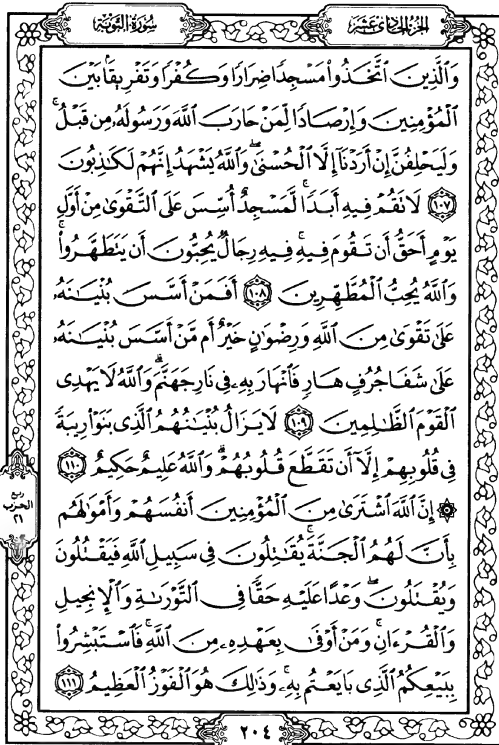 سورة التوبة
الجزء الحادي عشر
وَالَّذِينَ اتَّخَذُوا مَسْجِدًا ضِرَارًا وَكُفْرًا وَتَفْرِيقًا بَيْنَ
الْمُؤْمِنِينَ وَإِرْصَادًا لِّمَنْ حَارَبَ اللَّهَ وَرَسُولَهُ مِن قَبْلُ ۚ
وَلَيَحْلِفُنَّ إِنْ أَرَدْنَا إِلَّا الْحُسْنَىٰ ۖ وَاللَّهُ يَشْهَدُ إِنَّهُمْ لَكَاذِبُونَ
۝١٠٧ لَا تَقُمْ فِيهِ أَبَدًا ۚ لَّمَسْجِدٌ أُسِّسَ عَلَى التَّقْوَىٰ مِنْ أَوَّلِ
يَوْمٍ أَحَقُّ أَن تَقُومَ فِيهِ ۚ فِيهِ رِجَالٌ يُحِبُّونَ أَن يَتَطَهَّرُوا ۚ
وَاللَّهُ يُحِبُّ الْمُطَّهِّرِينَ ۝١٠٨ أَفَمَنْ أَسَّسَ بُنْيَانَهُ
عَلَىٰ تَقْوَىٰ مِنَ اللَّهِ وَرِضْوَانٍ خَيْرٌ أَم مَّنْ أَسَّسَ بُنْيَانَهُ
عَلَىٰ شَفَا جُرُفٍ هَارٍ فَانْهَارَ بِهِ فِي نَارِ جَهَنَّمَ ۗ وَاللَّهُ لَا يَهْدِي
الْقَوْمَ الظَّالِمِينَ ۝١٠٩ لَا يَزَالُ بُنْيَانُهُمُ الَّذِي بَنَوْا رِيبَةً
فِي قُلُوبِهِمْ إِلَّا أَن تَقَطَّعَ قُلُوبُهُمْ ۗ وَاللَّهُ عَلِيمٌ حَكِيمٌ ۝١١٠
۞ إِنَّ اللَّهَ اشْتَرَىٰ مِنَ الْمُؤْمِنِينَ أَنفُسَهُمْ وَأَمْوَالَهُم
بِأَنَّ لَهُمُ الْجَنَّةَ ۚ يُقَاتِلُونَ فِي سَبِيلِ اللَّهِ فَيَقْتُلُونَ
وَيُقْتَلُونَ ۖ وَعْدًا عَلَيْهِ حَقًّا فِي التَّوْرَاةِ وَالْإِنجِيلِ
وَالْقُرْءَانِ ۚ وَمَنْ أَوْفَىٰ بِعَهْدِهِ مِنَ اللَّهِ ۚ فَاسْتَبْشِرُوا
بِبَيْعِكُمُ الَّذِي بَايَعْتُم بِهِ ۚ وَذَٰلِكَ هُوَ الْفَوْزُ الْعَظِيمُ ۝١١١
ربع
الحزب
٢١
٢٠٤